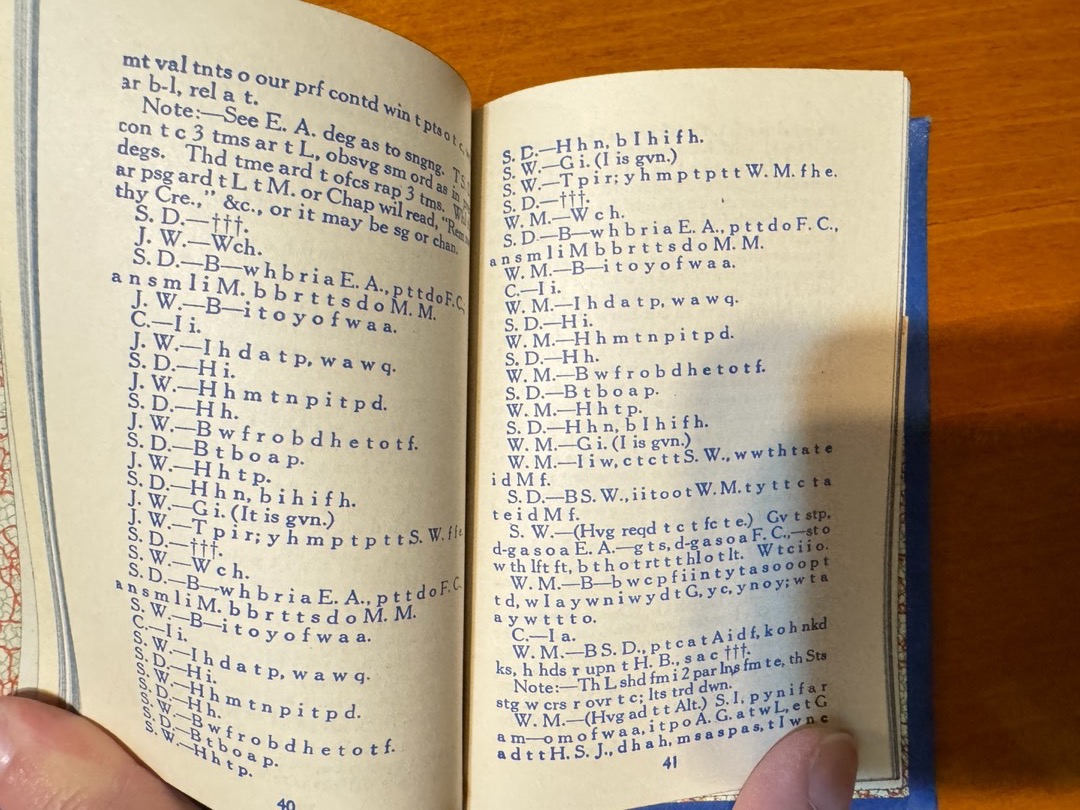 mt val tnts o our prf contd win t pts o t c
ar b-l, rel a t.
Note:—See E. A. deg as to sngng. T S.
con t c 3 tms ar t L, obsvg sm ord as in
degs. Thd tme ard t ofcs rap 3 tms.
ar psg ard t L t M. or Chap wil read, "Rem
thy Cre.," &c., or it may be sg or chan.
S. D.—†††.
J. W.—Wch.
S. D.—B—w h b r i a E. A., p t t d o F. C.,
a n s m l i M. b b r t t s d o M. M.
J. W.—B—i t o y o f w a a.
C.—I i.
J. W.—I h d a t p, w a w q.
S. D.—H i.
J. W.—H h m t n p i t p d.
S. D.—H h.
J. W.—B w f r o b d h e t o t f.
S. D.—B t b o a p.
J. W.—H h t p.
S. D.—H h n, b i h i f h.
J. W.—G i. (It is gvn.)
J. W.—T p i r; y h m p t p t t S. W. f
S. D.—†††.
S. W.—W c h.
S. D.—B—w h b r i a E. A., p t t d o F. C.,
a n s m l i M. b b r t t s d o M. M.
S. W.—B—i t o y o f w a a.
C.—I i.
S. W.—I h d a t p, w a w q.
S. D.—H i.
S. W.—H h m t n p i t p d.
S. D.—H h.
S. W.—B w f r o b d h e t o t f.
S. D.—B t b o a p.
S. W.—H h t p.
40
S. D.—H h n, b I h i f h.
S. W.—G i. (I is gvn.)
S. W.—T p i r; y h m p t p t t W. M. f h e.
S. D.—†††.
W. M.—W c h.
S. D.—B—w h b r i a E. A., p t t d o F. C.,
a n s m l i M b b r t t s d o M. M.
W. M.—B—i t o y o f w a a.
C.—I i.
W. M.—I h d a t p, w a w q.
S. D.—H i.
W. M.—H h m t n p i t p d.
S. D.—H h.
W. M.—B w f r o b d h e t o t f.
S. D.—B t b o a p.
W. M.—H h t p.
S. D.—H h n, b I h i f h.
W. M.—G i. (I is gvn.)
W. M.—I i w, c t c t t S. W., w w t h t a t e
i d M f.
S. D.—B S. W., i i t o o t W. M. t y t t c t a
t e i d M f.
S. W.—(Hvg reqd t c t fc t e.) Gv t stp,
d-g a s o a E. A.—g t s, d-g a s o a F. C.,—s t o
w th lft ft, b t h o t r t t t h l o t l t. W t c i i o.
W. M.—B—b w c p f i i n t y t a s o o o p t
t d, w I a y w n i w y d t G, y c, y n o y; w t a
a y w t t t o.
C.—I a.
W. M.—B S. D., p t c a t A i d f, k o h n k d
ks, h hds r upn t H. B., s a c †††.
Note:—Th L shd fm i 2 par lns fm t e, th Sts
stg w crs r ovr t c; lts trd dwn.
W. M.—(Hvg ad t t Alt.) S. I, p y n i f a r
a m—o m o f w a a, i t p o A. G. a t w L, e t G
a d t t H. S. J., d h a h, m s a s p a s, t I w n c
41